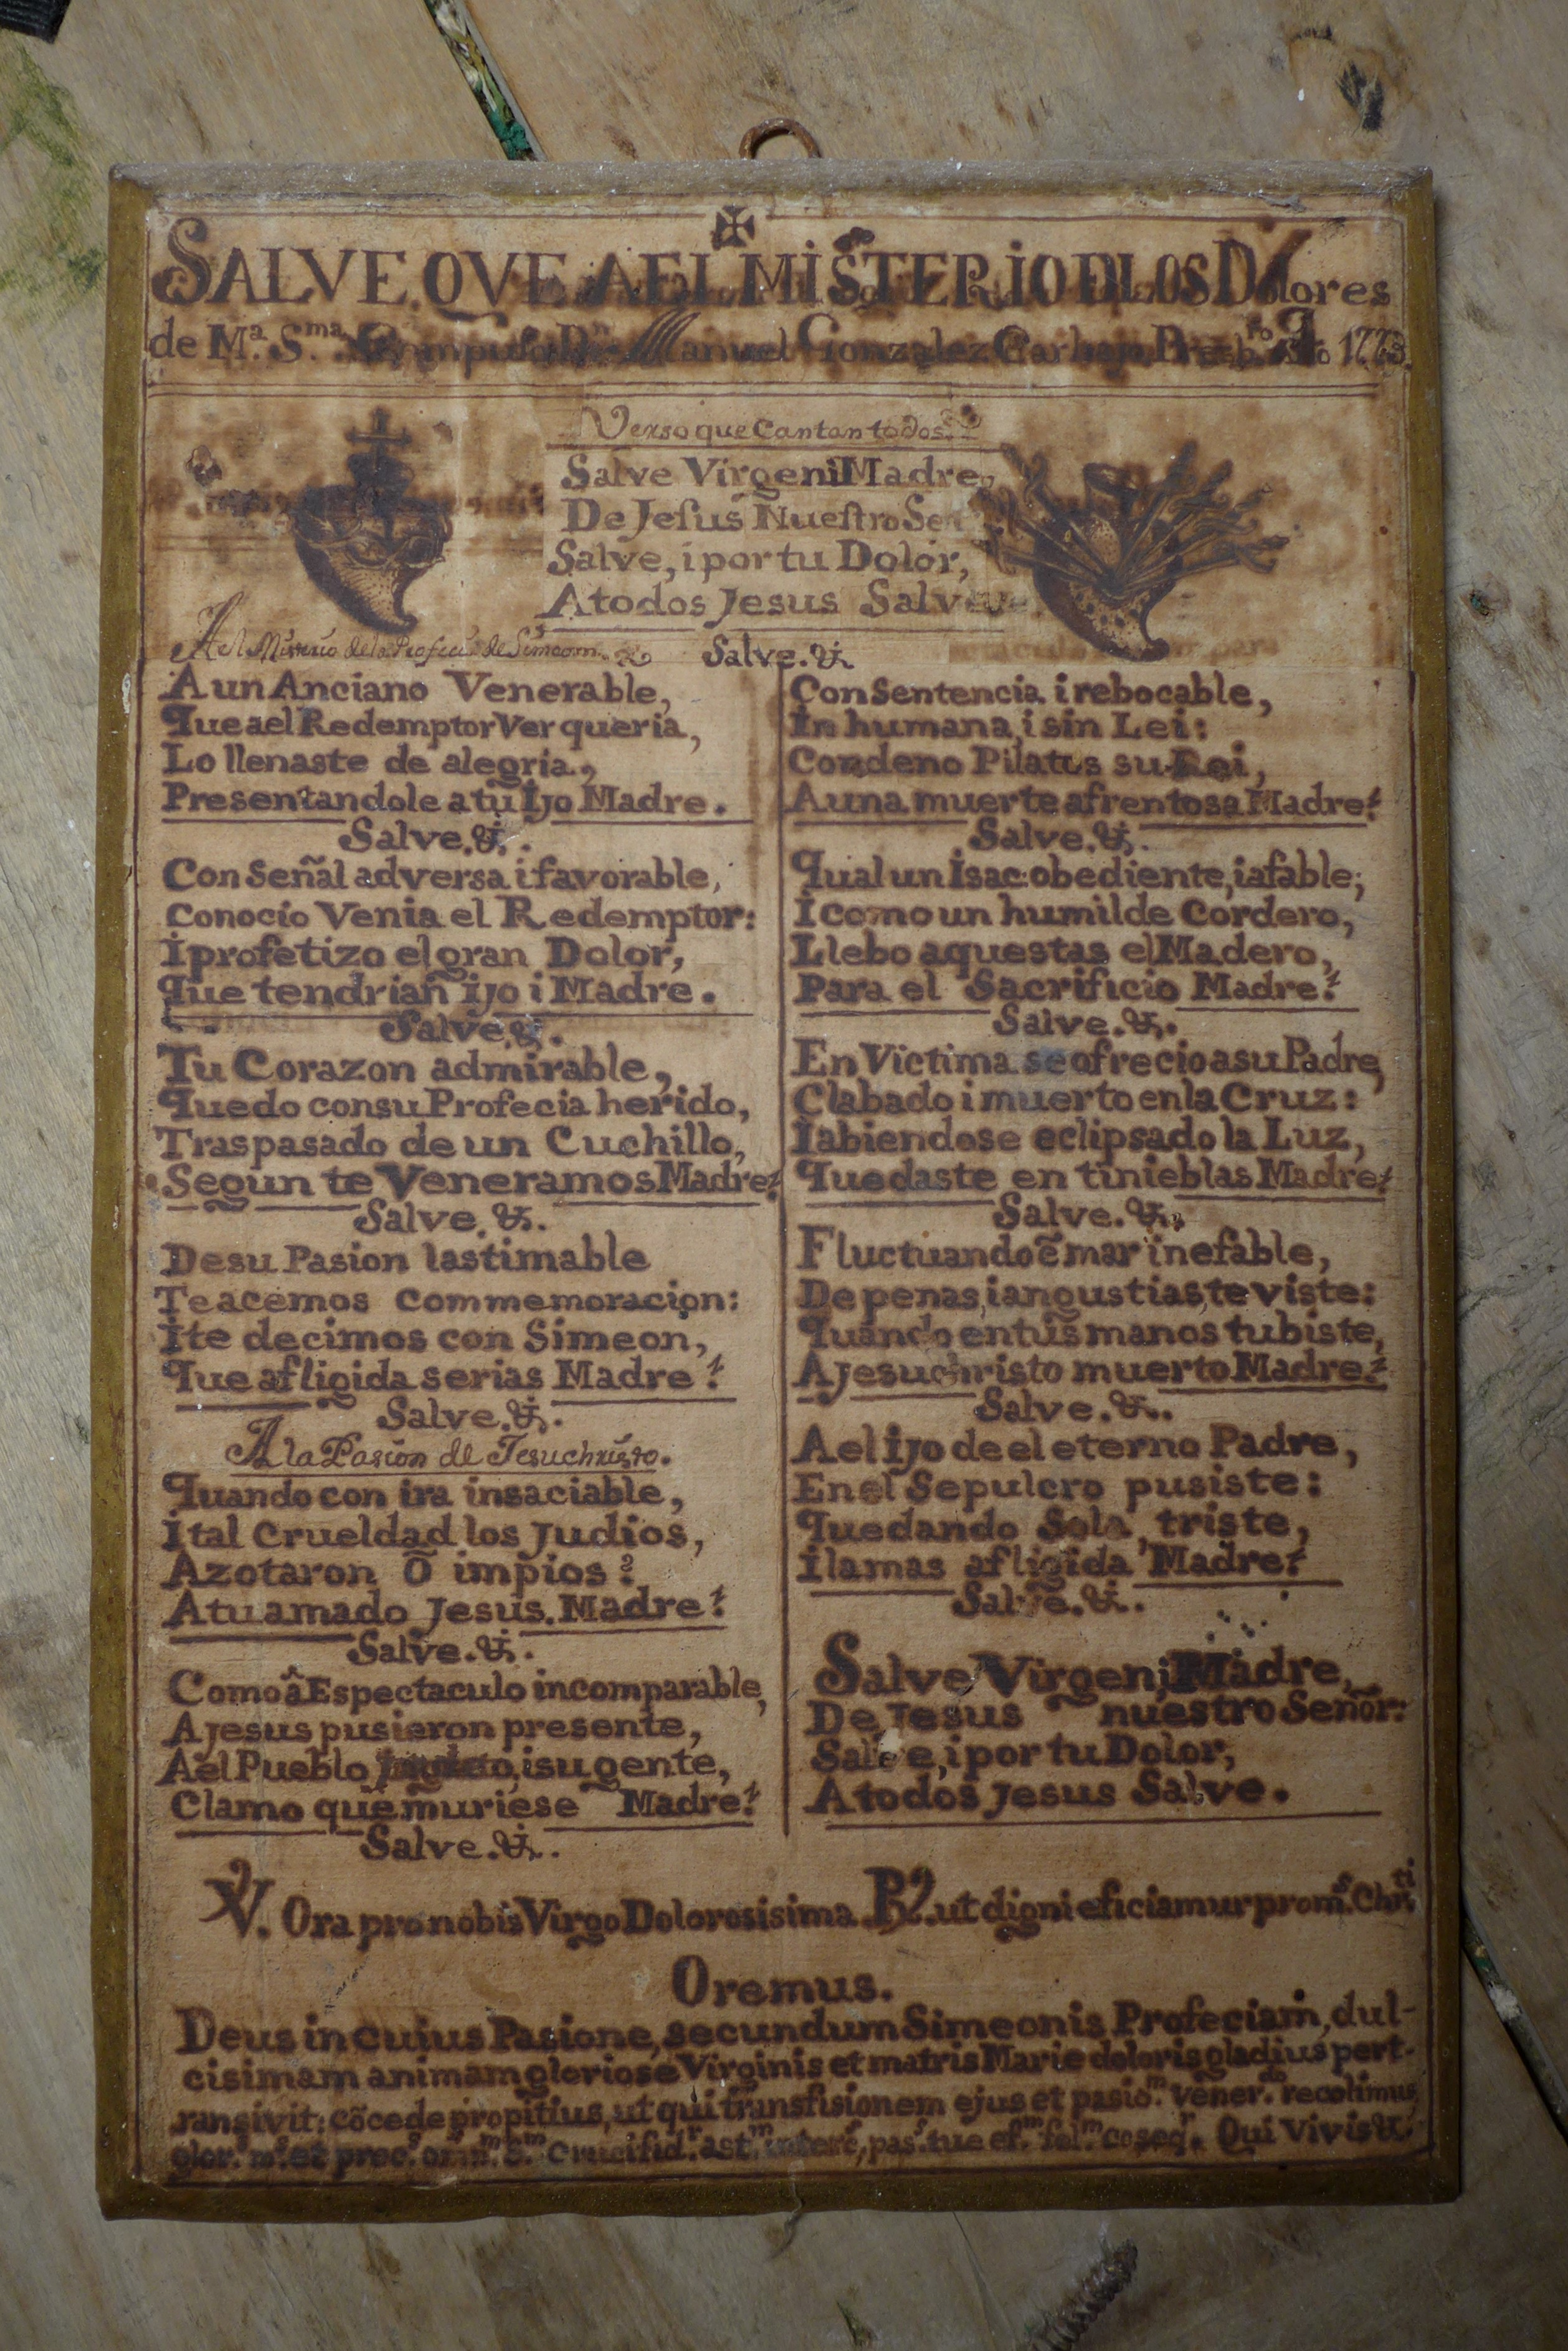 SALVE QVE A EL MISTERIO D LOS Dolores
de Mª. S.ma Compuso Dn. Manuel Gonzalez Carbajo Presb.ro Año 1773.
Verso que Cantan todos.
Salve Virgen i Madre,
De Jesus Nuestro Señ
Salve, i por tu Dolor,
A todos Jesus Salve
A el Misterio de la Profecia de Simeom.
A un Anciano Venerable,
Que a el Redemptor Ver queria,
Lo llenaste de alegria,
Presentandole a tu Ijo Madre.
Salve.&.
Con Señal adversa i favorable,
Conocio Venia el Redemptor:
I profetizo el gran Dolor,
Que tendrian Ijo i Madre.
Salve&.
Tu Corazon admirable,
Quedo con su Profecia herido,
Traspasado de un Cuchillo,
Segun te Veneramos Madre!
Salve.&.
De su Pasion lastimable
Te acemos commemoracion:
I te decimos con Simeon,
Que afligida serias Madre!
Salve.&.
A la Pasion de Jesuchristo.
Quando con ira insaciable,
I tal Crueldad los Judios,
Azotaron Õ impios?
A tu amado Jesus. Madre!
Salve.&.
Como â Espectaculo incomparable,
A Jesus pusieron presente,
A el Pueblo i su gente,
Clamo que muriese Madre!
Salve.&.
Salve.&
Con Sentencia i rebocable,
In humana i sin Lei:
Condeno Pilatus su Rei,
A una muerte afrentosa Madre!
Salve.&.
Qual un Isac obediente, i afable;
I como un humilde Cordero,
Llebo a questas el Madero,
Para el Sacrificio Madre!
Salve.&.
En Victima se ofrecio a su Padre,
Clabado i muerto en la Cruz:
I abiendose eclipsado la Luz,
Quedaste en tinieblas Madre!
Salve.&.
Fluctuando ẽ mar inefable,
De penas, i angustias te viste:
Quando en tus manos tubiste,
A Jesuchristo muerto Madre!
Salve.&.
A el Ijo de el eterno Padre,
En el Sepulcro pusiste:
Quedando Sola, triste,
I la mas afligida Madre!
Salve.&.
Salve Virgen i Madre,
De Jesus nuestro Señor:
Salve, i por tu Dolor,
A todos Jesus Salve.
V. Ora pro nobis Virgo Dolorosisima. R. ut digni eficiamur prom.s Chri.ti
Oremus.
Deus in cuius Pasione, secundum Simeonis Profeciam, dul-
cisimam animam gloriose Virginis et matris Marie doloris gladius pert-
ransivit: cõcede propitius, ut qui transfisionem ejus et pasio.m vener.do recolimus
glor.s m.s et prec.s S.m Crucifid.r ast.m interc, pas.s tue ef.m fel.m coseq.r. Qui Vivis &.